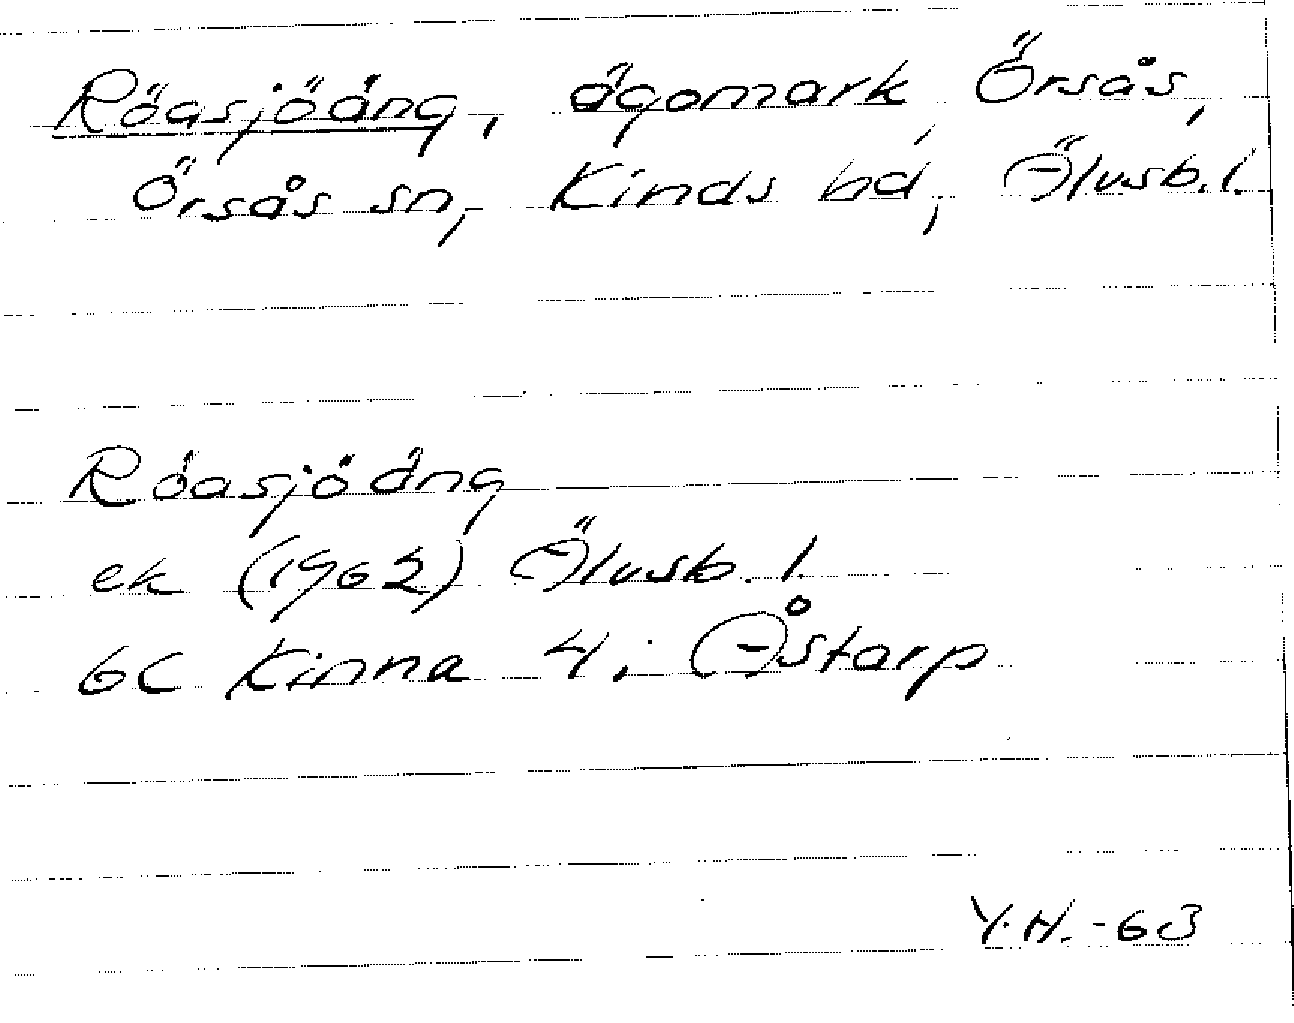 Röasjöäng, ägomark Örsås,
Örsås sn, Kinds hd, Älvsb. l.
Röasjöäng
ek (1962) Älvsb. l.
6C Kinna 4i Åstarp
Y.H. -63